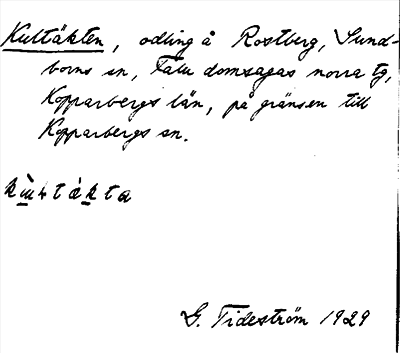 Kultäkten, odling å Rostberg, Sund-
borns sn, Falu domsagas norra tg,
Kopparbergs län, på gränsen till
Kopparbergs sn.
G. Tideström 1929